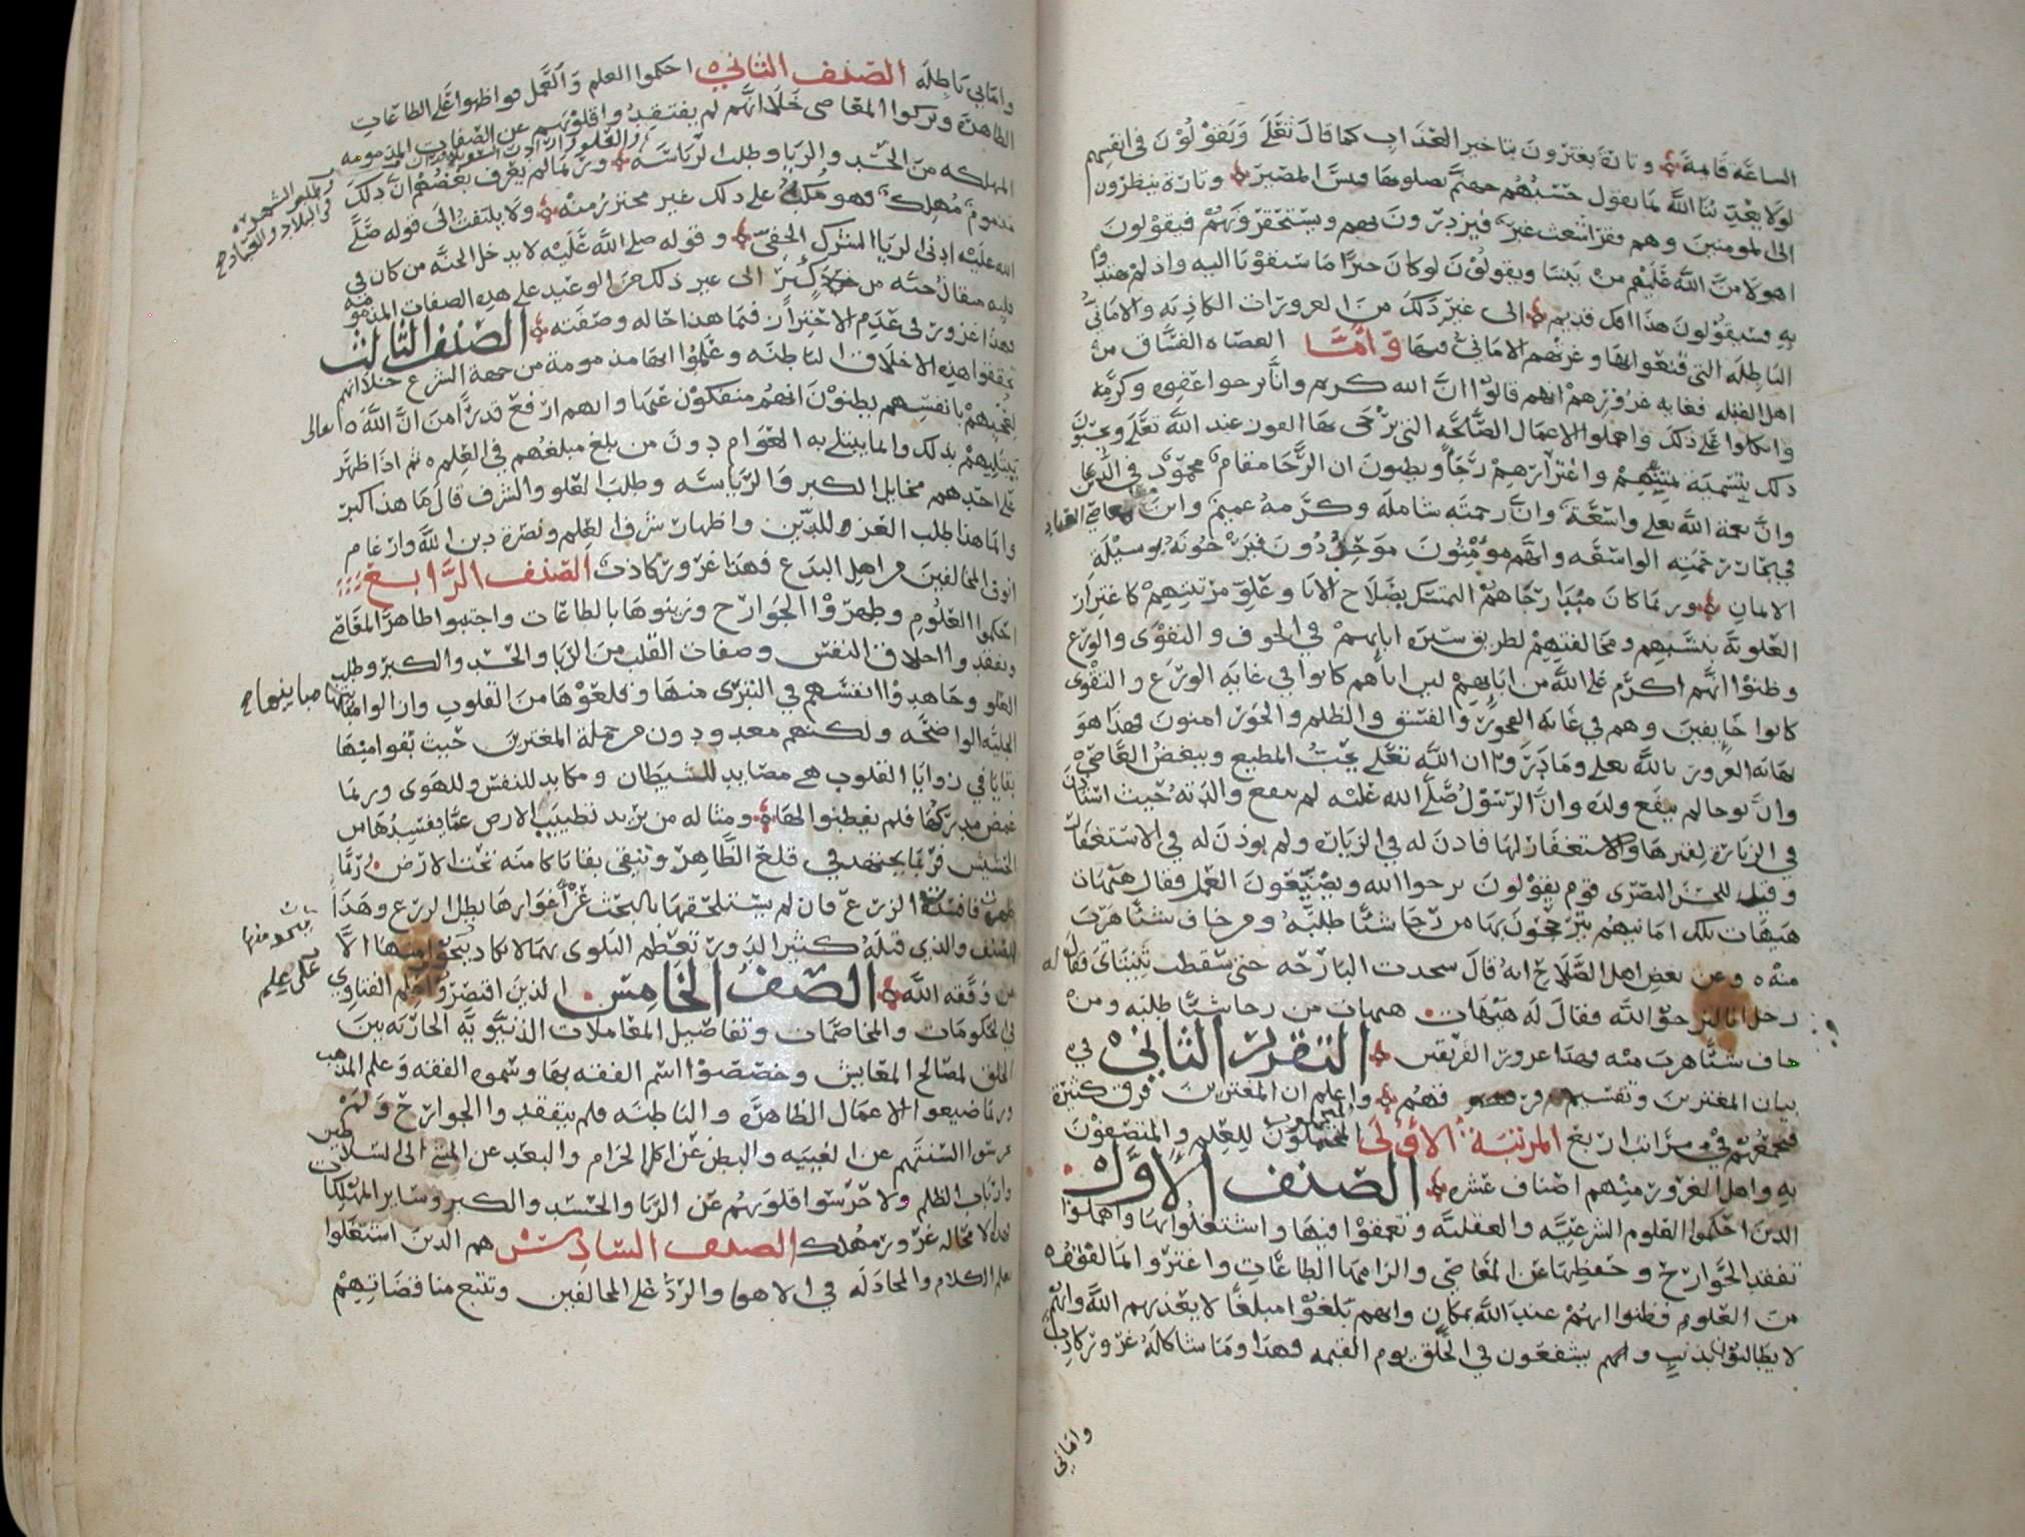 الساعة قايمة وتارة يغترون بتاخير العذاب كما قال تعلى ويقولون في انفسهم
لولا يعذبنا الله بما نقول حسبهم جهنم يصلونها فبيس المصير وتارة ينظرون
الى المومنين وهم فقرا شعث غبر فيزدرون بهم ويستحقرونهم فيقولون
اهولا من الله عليهم من بيننا ويقولون لو كان خيرا ما سبقونا اليه واذ لم يهتدوا
به فسيقولون هذا افك قديم الى غير ذلك من الغرورات الكاذبه والاماني
الباطله التي قنعوا بها وغرتهم الاماني فيها واما العصاه الفساق من
اهل القبله فغايه غرورهم انهم قالوا ان الله كريم وانا نرجوا عفوه وكرمه
واتكلوا على ذلك واهملوا الاعمال الصالحه التي يرجى بها الفوز عند الله تعلى ويحبون
ذلك بتسمية تمنيهم واغترارهم رجاً ويظنون ان الرجا مقام محمود في الدين
وان نعمة الله تعلى واسعة وان رحمته شاملة وكرمه عميم وان معاصي العباد
في بحار رحمته الواسعه وانهم مومنون موحدون فيرجونه بوسيلة
الايمان وربما كان مبدا رجاهم التمسك بصلاح الابا وعلو مرتبتهم كاغترار
العلوية بنسبهم ومخالفتهم لطريق سيرة ابايهم في الخوف والتقوى والورع
وظنوا انهم اكرم على الله من ابايهم لان اباهم كانوا في غاية الورع والتقوى
كانوا خايفين وهم في غاية الفجور والفسق والظلم والجور امنون فهذا هو
نهاية الغرور بالله تعلى وما دروا ان الله تعلى يحب المطيع ويبغض العاصي
وان نوحا لم ينفع ولده وان الرسول صلى الله عليه لم ينفع والدته حيث استاذن
في الزيارة لقبرها والاستغفار لها فاذن له في الزيارة ولم يوذن له في الاستغفار
وقيل للحسن البصرى قوم يقولون نرجوا الله ويضيعون العمل فقال هيهات
هيهات تلك امانيهم يترجحون بها من رجا شيئا طلبه ومن خاف شيئا هرب
منه وعن بعض اهل الصلاح انه قال سجدت البارحه حتى سقطت ثنيتاى فقال له
رجل انا لنرجو الله فقال له هيهات هيهات من رجا شيئا طلبه ومن
خاف شيئا هرب منه فهذا غرور الفريقين التقرير الثاني في
بيان المغترين وتقسيم فرقهم واعلم ان المغترين فرق كثيرة
فجمعتهم في مراتب اربع المرتبة الاولى المحصلون للعلم والمتصفون
به واهل الغرور منهم اصناف عشره الصنف الاول
الذين احكموا العلوم الشرعيه والعقليه وتعمقوا فيها واشتغلوا بها واهملوا
تفقد الجوارح وحفظها عن المعاصي والزامها الطاعات واغتروا بما لقفوه
من العلوم فظنوا انهم عند الله بمكان وانهم بلغوا مبلغا لا يعذبهم الله وانهم
لا يطالبون بذنب وانهم يشفعون في الخلق يوم القيمه فهذا وما شاكله غرور كاذب
واماني
واماني باطله الصنف الثاني احكموا العلم والعمل فواظبوا على الطاعات
الظاهرة وتركوا المعاصي خلا انهم لم يفتقدوا قلوبهم عن الصفات المذمومه
المهلكه من الحسد والريا وطلب الرياسه وربما لم يعرف بعضهم ان ذلك
وطلب الشهره في البلاد والعباد صح
مذموم مهلك فهو مكب على ذلك غير محترز منه ولا يلتفت الى قوله صلى
الله عليه ادنى الريا الشرك الخفي وقوله صلى الله عليه لا يدخل الجنه من كان في
قلبه مثقال حبه من كبر الى غير ذلك من الوعيد على هذه الصفات المذمومه
فهذا غرور في عدم الاحتراز فيما هذا حاله وصفته الصنف الثالث
تحققوا هذه الاخلاق الباطنه وعلموا انها مذمومة من جهة الشرع خلا انهم
لعجبهم بانفسهم يظنون انهم منفكون عنها وانهم ارفع قدراً من ان الله تعالى
يبتليهم بذلك وانما يبتلى به العوام دون من بلغ مبلغهم في العلم ثم اذا ظهر
على احدهم مخايل الكبر والرياسه وطلب العلو والشرف قال ما هذا كبر
وانما هذا طلب العز للدين واظهار شرف العلم ونصرة دين الله وارغام
انوف المخالفين من اهل البدع فهذا غرور كاذب الصنف الرابع
احكموا العلوم وطهروا الجوارح وزينوها بالطاعات واجتنبوا ظاهر المعاصي
وتفقدوا اخلاق النفس وصفات القلب من الريا والحسد والكبر وطلب
العلو وجاهدوا انفسهم في التبرى منها وقلعوها من القلوب
الجليه الواضحه ولكنهم معدودون من جملة المغترين حيث بقوا منها
بقايا في زوايا القلوب هي مصايد للشيطان ومكايد للنفس وللهوى وربما
غمض مدركها فلم يفطنوا لها ومثاله من يريد تطييب الارض عما يفسدها من
الحشيش فربما يجتهد في قلع الظاهر وتبقى بقايا كامنه تحت الارض ربما
ظهرت فافسدت الزرع فان لم يستلحقها بالبحث عن اغوارها بطل الزرع وهذا
الصنف والذي قبله كثير الدور تعظم البلوى بهما لا يكاد ينجو منها الا
من وفقه الله الصنف الخامس الذين اقتصروا على علم الفتاوي
في الحكومات والمخاصمات وتفاصيل المعاملات الدنيوية الجارية بين
الخلق لمصالح المعايش وخصصوا اسم الفقه بها وسموه الفقه وعلم المذهب
وربما ضيعوا الاعمال الظاهرة والباطنه فلم يتفقدوا الجوارح ولم
يحرسوا السنتهم عن الغيبه والبطن عن اكل الحرام والبعد عن المشي الى السلاطين
وارباب الظلم ولا حرسوا قلوبهم عن الريا والحسد والكبر وساير المهلكات
فهذا لا محاله غرور مهلك الصنف السادس هم الذين اشتغلوا
بعلم الكلام والمجادله في الاهوا والرد على المخالفين وتتبع مناقضاتهم